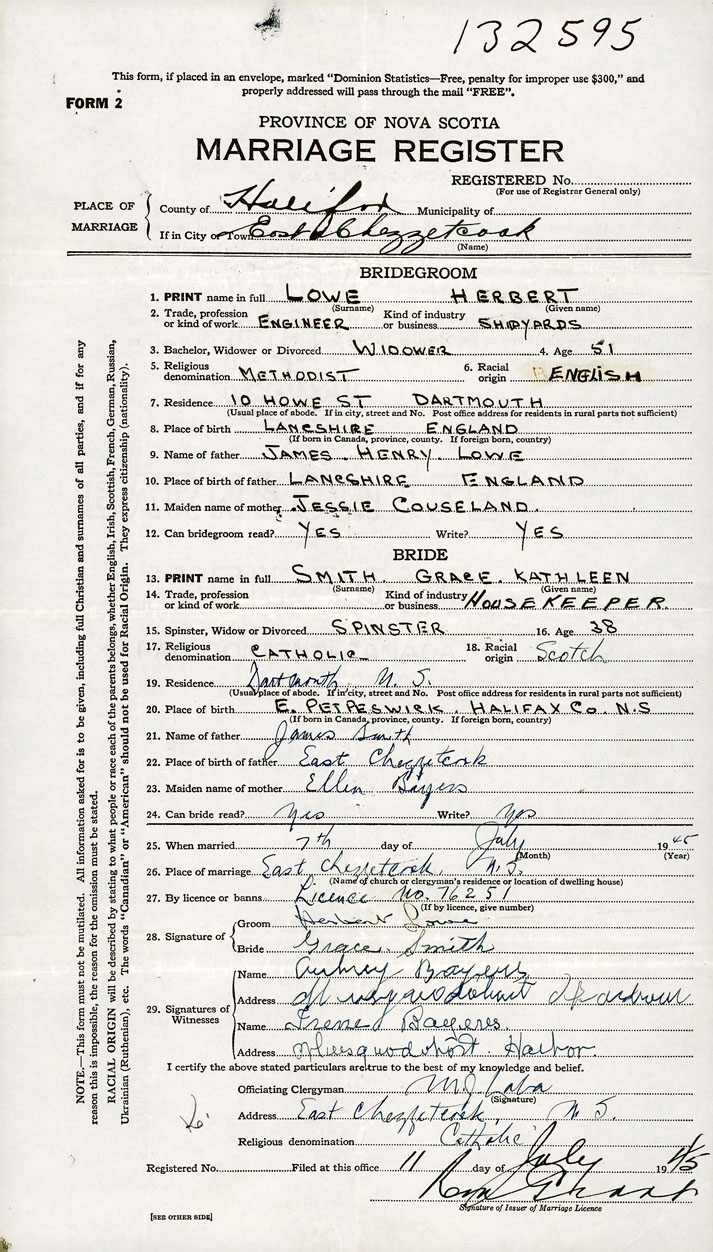 132595
This form, if placed in an envelope, marked "Dominion Statistics—Free, penalty for improper use $300," and
properly addressed will pass through the mail "FREE".
FORM 2
PROVINCE OF NOVA SCOTIA
MARRIAGE REGISTER
REGISTERED No.
(For use of Registrar General only)
PLACE OF MARRIAGE
County of Halifax Municipality of
If in City or Town East Chezzetcook
(Name)
BRIDEGROOM
1. PRINT name in full LOWE HERBERT
(Surname) (Given name)
2. Trade, profession or kind of work ENGINEER Kind of industry or business SHIPYARDS
3. Bachelor, Widower or Divorced WIDOWER 4. Age 51
5. Religious denomination METHODIST 6. Racial origin ENGLISH
7. Residence 10 HOWE ST DARTMOUTH
(Usual place of abode. If in city, street and No. Post office address for residents in rural parts not sufficient)
8. Place of birth LANCSHIRE ENGLAND
(If born in Canada, province, county. If foreign born, country)
9. Name of father JAMES. HENRY. LOWE
10. Place of birth of father LANCSHIRE ENGLAND
11. Maiden name of mother JESSIE COUSELAND.
12. Can bridegroom read? YES Write? YES
BRIDE
13. PRINT name in full SMITH. GRACE. KATHLEEN
(Surname) (Given name)
14. Trade, profession or kind of work Kind of industry or business HOUSEKEEPER.
15. Spinster, Widow or Divorced SPINSTER 16. Age 38
17. Religious denomination CATHOLIC 18. Racial origin Scotch
19. Residence Dartmouth N. S.
(Usual place of abode. If in city, street and No. Post office address for residents in rural parts not sufficient)
20. Place of birth E. PETPESWICK. HALIFAX Co. N.S
(If born in Canada, province, county. If foreign born, country)
21. Name of father James Smith
22. Place of birth of father East Chezzetcook
23. Maiden name of mother Ellen Bayers
24. Can bride read? Yes Write? Yes
25. When married 7th day of July 1945
(Month) (Year)
26. Place of marriage East Chezzetcook, N.S.
(Name of church or clergyman's residence or location of dwelling house)
27. By licence or banns Licence No. 76251
(If by licence, give number)
28. Signature of
Groom Herbert Lowe
Bride Grace Smith
29. Signatures of Witnesses
Name Aubrey Bayers
Address Musquodoboit
Name Irene Bayers
Address Musquodoboit. Harbor.
I certify the above stated particulars are true to the best of my knowledge and belief.
Officiating Clergyman
(Signature)
Address East Chezzetcook, N. S.
Religious denomination Catholic
Registered No. Filed at this office 11 day of July 1945
Signature of Issuer of Marriage Licence
[SEE OTHER SIDE]
NOTE.—This form must not be mutilated. All information asked for is to be given, including full Christian and surnames of all parties, and if for any
reason this is impossible, the reason for the omission must be stated.
RACIAL ORIGIN will be described by stating to what people or race each of the parents belongs, whether English, Irish, Scottish, French, German, Russian,
Ukrainian (Ruthenian), etc. The words "Canadian" or "American" should not be used for Racial Origin. They express citizenship (nationality).